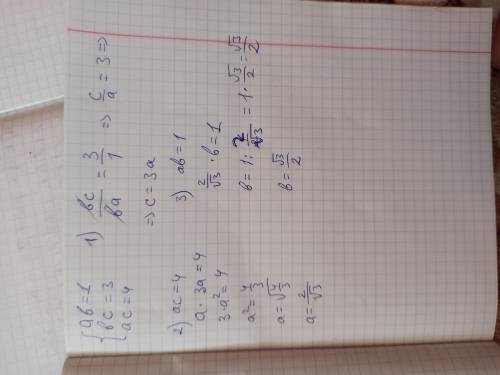 { ab=1
bc=3
ac=4
1) bc/ba = 3/1 => c/a = 3 =>
=> c=3a
2) ac=4
a · 3a=4
3·a²=4
a²=4/3
a=√(4/3)
a=2/√3
3) ab=1
2/√3 · b=1
b=1: 2/√3 = 1·√3/2=√3/2
b=√3/2